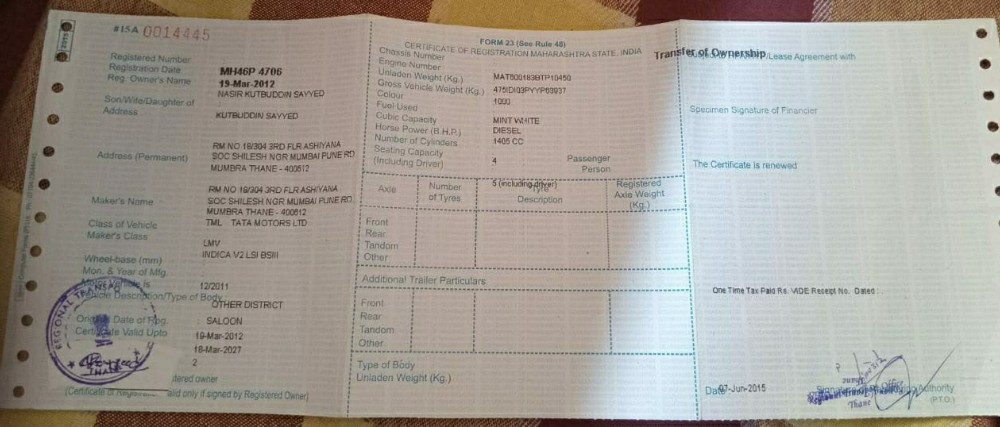 #15A 0014445
Registered Number
Registration Date
Reg. Owner's Name
MH46P 4706
19-Mar-2012
NASIR KUTBUDDIN SAYYED
Son/Wife/Daughter of
Address
KUTBUDDIN SAYYED
Address (Permanent)
RM NO 18/304 3RD FLR ASHIYANA
SOC SHILESH NGR MUMBAI PUNE RD
MUMBRA THANE - 400612
RM NO 18/304 3RD FLR ASHIYANA
Maker's Name
SOC SHILESH NGR MUMBAI PUNE RD
MUMBRA THANE - 400612
Class of Vehicle
TML TATA MOTORS LTD
Maker's Class
LMV
INDICA V2 LSI BSIII
Wheel-base (mm)
Mon. & Year of Mfg.
12/2011
Vehicle Description/Type of Body
OTHER DISTRICT
Date of Reg.
SALOON
Certificate Valid Upto
19-Mar-2012
18-Mar-2027
2
REGIONAL TRANS
THANE
owner
(Certificate of and only if signed by Registered Owner)
FORM 23 (See Rule 48)
CERTIFICATE OF REGISTRATION MAHARASHTRA STATE, INDIA
Chassis Number
Engine Number
Unladen Weight (Kg.)
MAT600183BTP10450
Gross Vehicle Weight (Kg.)
Colour
1000
Fuel Used
Cubic Capacity
MINT WHITE
Horse Power (B.H.P.)
DIESEL
Number of Cylinders
1405 CC
Seating Capacity
(Including Driver)
4
Passenger
Person
5 (including driver)
Axle
Number
of Tyres
Tyre
Description
Registered
Axle Weight
(Kg.)
Front
Rear
Tandom
Other
Additional Trailer Particulars
Front
Rear
Tandom
Other
Type of Body
Unladen Weight (Kg.)
Transfer of Ownership
/Lease Agreement with
Specimen Signature of Financier
The Certificate is renewed
One Time Tax Paid Rs. VIDE Receipt No. Dated :
Date
07-Jun-2015
Authority
Thane
(P.T.O.)